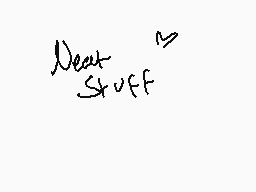 Neat
Stuff